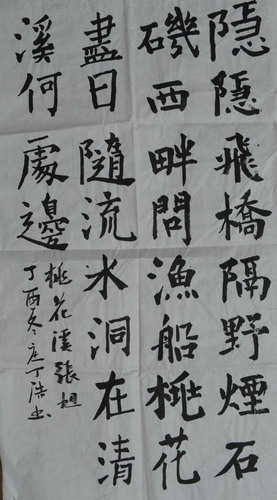 隱隱飛橋隔野煙石
磯西畔問漁船桃花
盡日隨流水洞在清
溪何處邊
桃花溪張旭
丁酉冬庄丁浩书